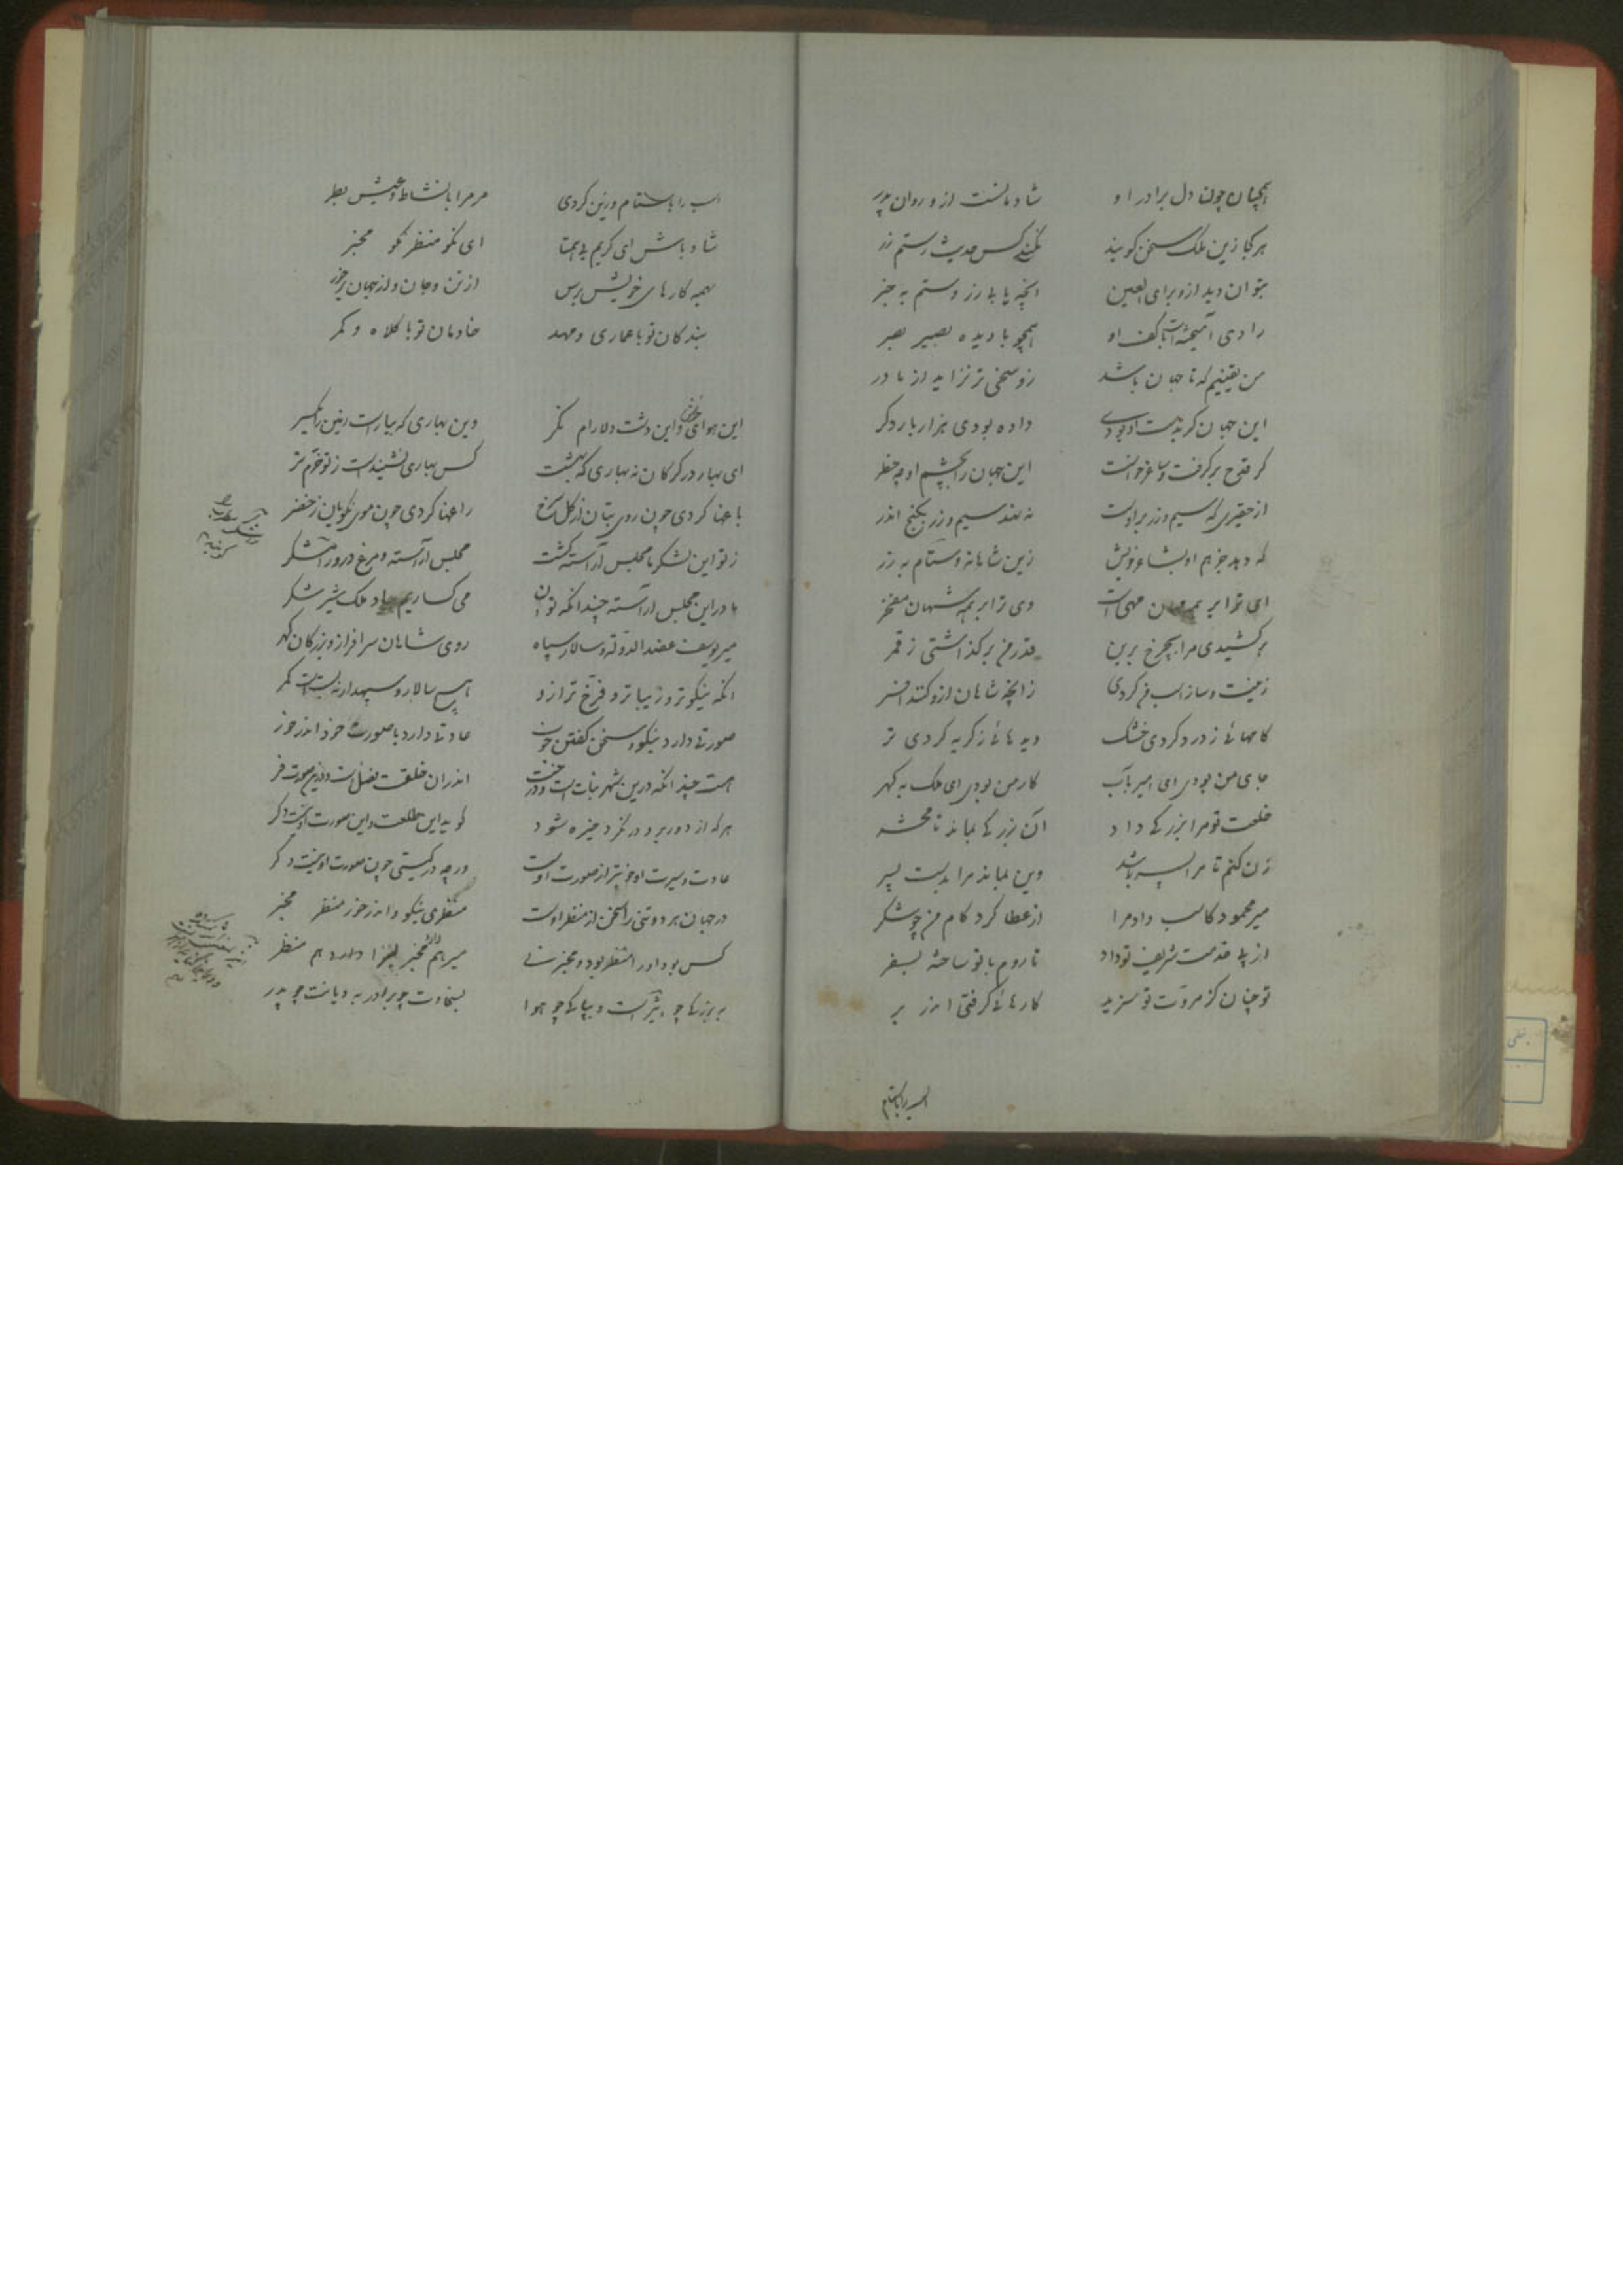 همچنان چون دل برادر او شادمانست ازو روان پدر
هر کجا زین ملک سخن گویند نکند کس حدیث رستم زر
بتوان دید ازو برای العین آنچه یابی ز رستم به خبر
رادی آمیخته است با کف او همچو با دیده بصیر بصر
من یقینم که تا جهان باشد زو سخی تر نزاید از مادر
این جهان گر بدست او بودی داده بودی هزار بار دگر
گر قدح بر گرفت و ساغر خواست این جهان را بچشم او چه خطر
از حقیری که سیم و زر بر اوست ننهد سیم و زر بگنج اندر
که دهد جز هم او بشاعر خویش زین شاهانه و ستام به زر
ای ترا بر مهی است وی ترا بر همه شهان مفخر
بر کشیدی مرا بچرخ برین قدر من بر گذاشتی ز قمر
زینت و ساز اسب من کردی زآنچه شاهان ازو کنند افسر
کامهائی ز درد کردی خشک دیدهائی ز گریه کردی تر
جای من بودی ای امیر بآب کار من بودی ای ملک به گهر
خلعت تو مرا بزرگی داد آن بزرگی بماند تا محشر
زن کنم تا مرا پسر باشد وین بماند مرا بدست پسر
میر محمود کاسب داد مرا از عطا کرد کام من چو شکر
از پی خدمت شریف تو داد تا روم با تو ساخته بسفر
تو چنان کز مروت تو سزید کارهائی گرفتی اندر بر
اسب را باستام
اسب را باستام و زین کردی مر مرا با نشاط و عیش بطر
شاد باش ای کریم بی همتا ای نکو منظر نکو مخبر
بهمه کارهای خویش برس از تن و جان و از جهان برخور
بندگان تو با عماری و مهد خادمان تو با کلاه و کمر
این هوای خوش و این دشت دلارام نگر وین بهاری که بیاراست زمین را یکسر
ای بهار در گرگان نه بهاری که بهشت کس بهاری نشنیدست ز تو خرم تر
باغها کردی چون روی بتان از گل سرخ راغها کردی چون موی نکویان ز خضر
ز تو این لشکر ما مجلس آراسته گشت مجلس آراسته و مرغ درو رامشگر
ما در این مجلس آراسته چندانکه توان می گساریم بیاد ملک شیر شکر
میر یوسف عضدالدوله و سالار سپاه روی شاهان سرافراز و بزرگان گهر
آنکه نیکوتر و زیباتر و فرخ تر ازو هیچ سالار و سپهدار نبسته است کمر
صورتی دارد نیکو و سخن گفتن خوب عادتی دارد با صورت خود اندر خور
است چندانکه درین شهر نبات است و درخت اندران خلقت فضل است و درین صورت فر
هر که از دور برو در نگرد خیره شود گوید این طلعت و این صورت اوست دگر
عادت و سیرت او خوبتر از صورت اوست ور چه در گیتی چون صورت او نیست دگر
در جهان هر دو تنی را سخن از منظر اوست منظری نیکو و اندر خور منظر مخبر
کس بود او را منظر بود و مخبر نی میر هم مخبر دارد هم منظر
به بزرگی چو و بپاکی چو هوا بسخاوت چو برادر به دیانت چو پدر